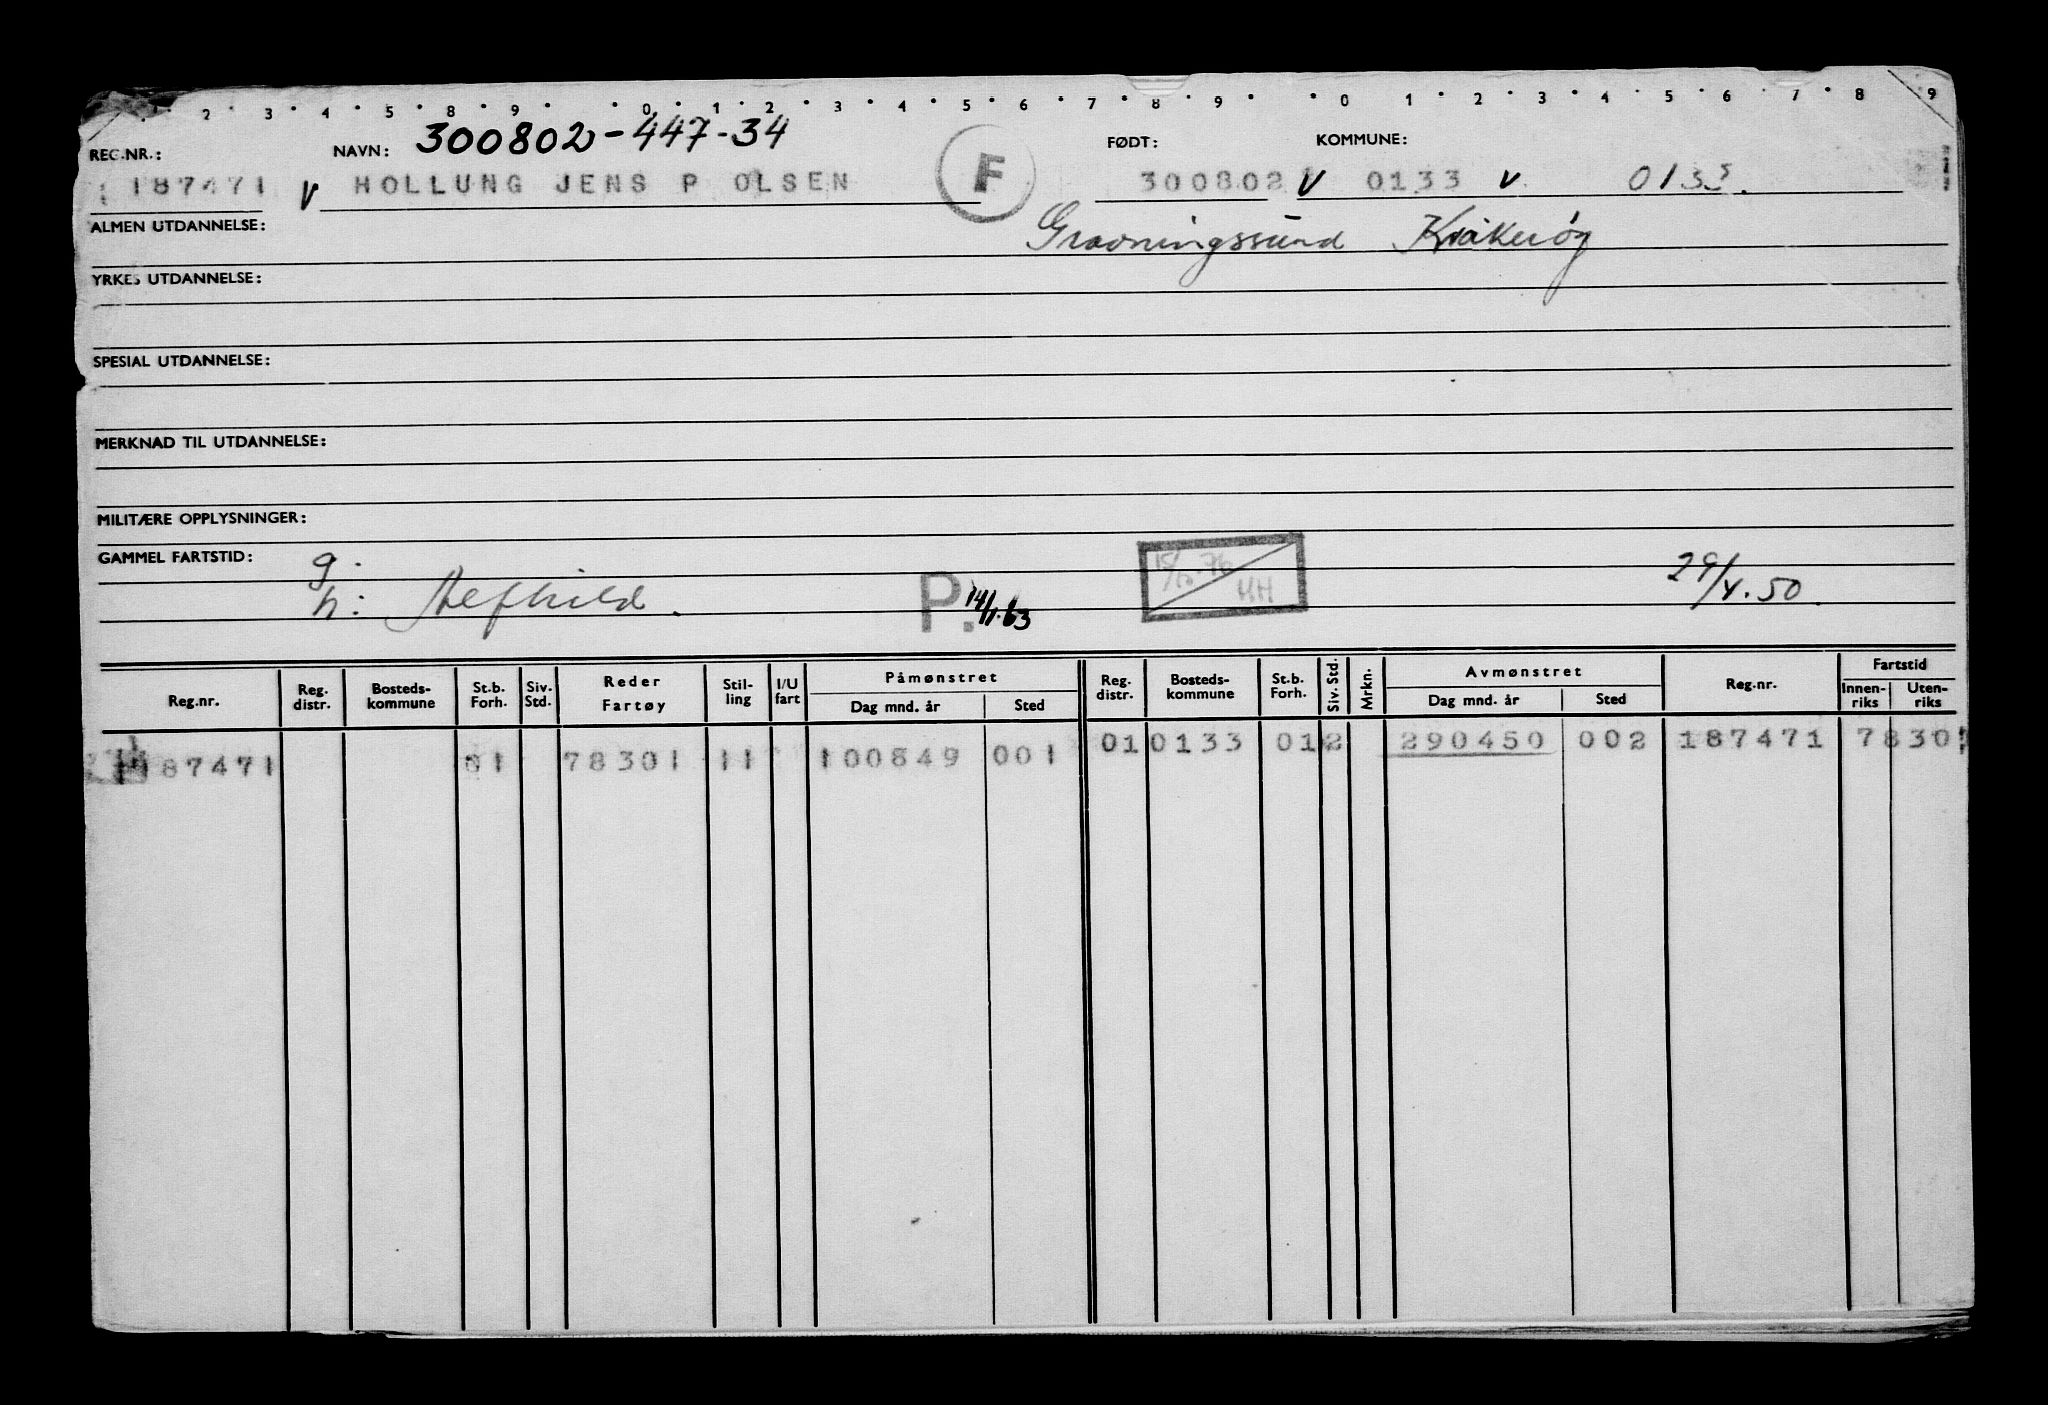 2 3 4 5 8 9 0 1 2 3 4 5 6 7 8 9 0 1 2 3 4 5 6 7 8 9
REG.NR.: NAVN: 300802-447-34 FØDT: KOMMUNE:
187471 V HOLLUNG JENS P OLSEN F 300802 V 0133 V 0133.
ALMEN UTDANNELSE: Gravningssund Kråkerøy
YRKES UTDANNELSE:
SPESIAL UTDANNELSE:
MERKNAD TIL UTDANNELSE:
MILITÆRE OPPLYSNINGER:
GAMMEL FARTSTID: g. 15/12.76 HH 29/4.50.
n: Alfhild. P. 14/1.63
Reg.nr. Reg. distr. Bosteds-kommune St.b. Forh. Siv. Std. Reder Fartøy Stil-ling I/U fart Påmønstret Dag mnd. år Sted Reg. distr. Bosteds-kommune St.b. Forh. Siv. Std. Mrkn. Avmønstret Dag mnd. år Sted Reg.nr. Fartstid Innen-riks Uten-riks
187471 01 78301 11 100849 001 01 0133 01 2 290450 002 187471 78301